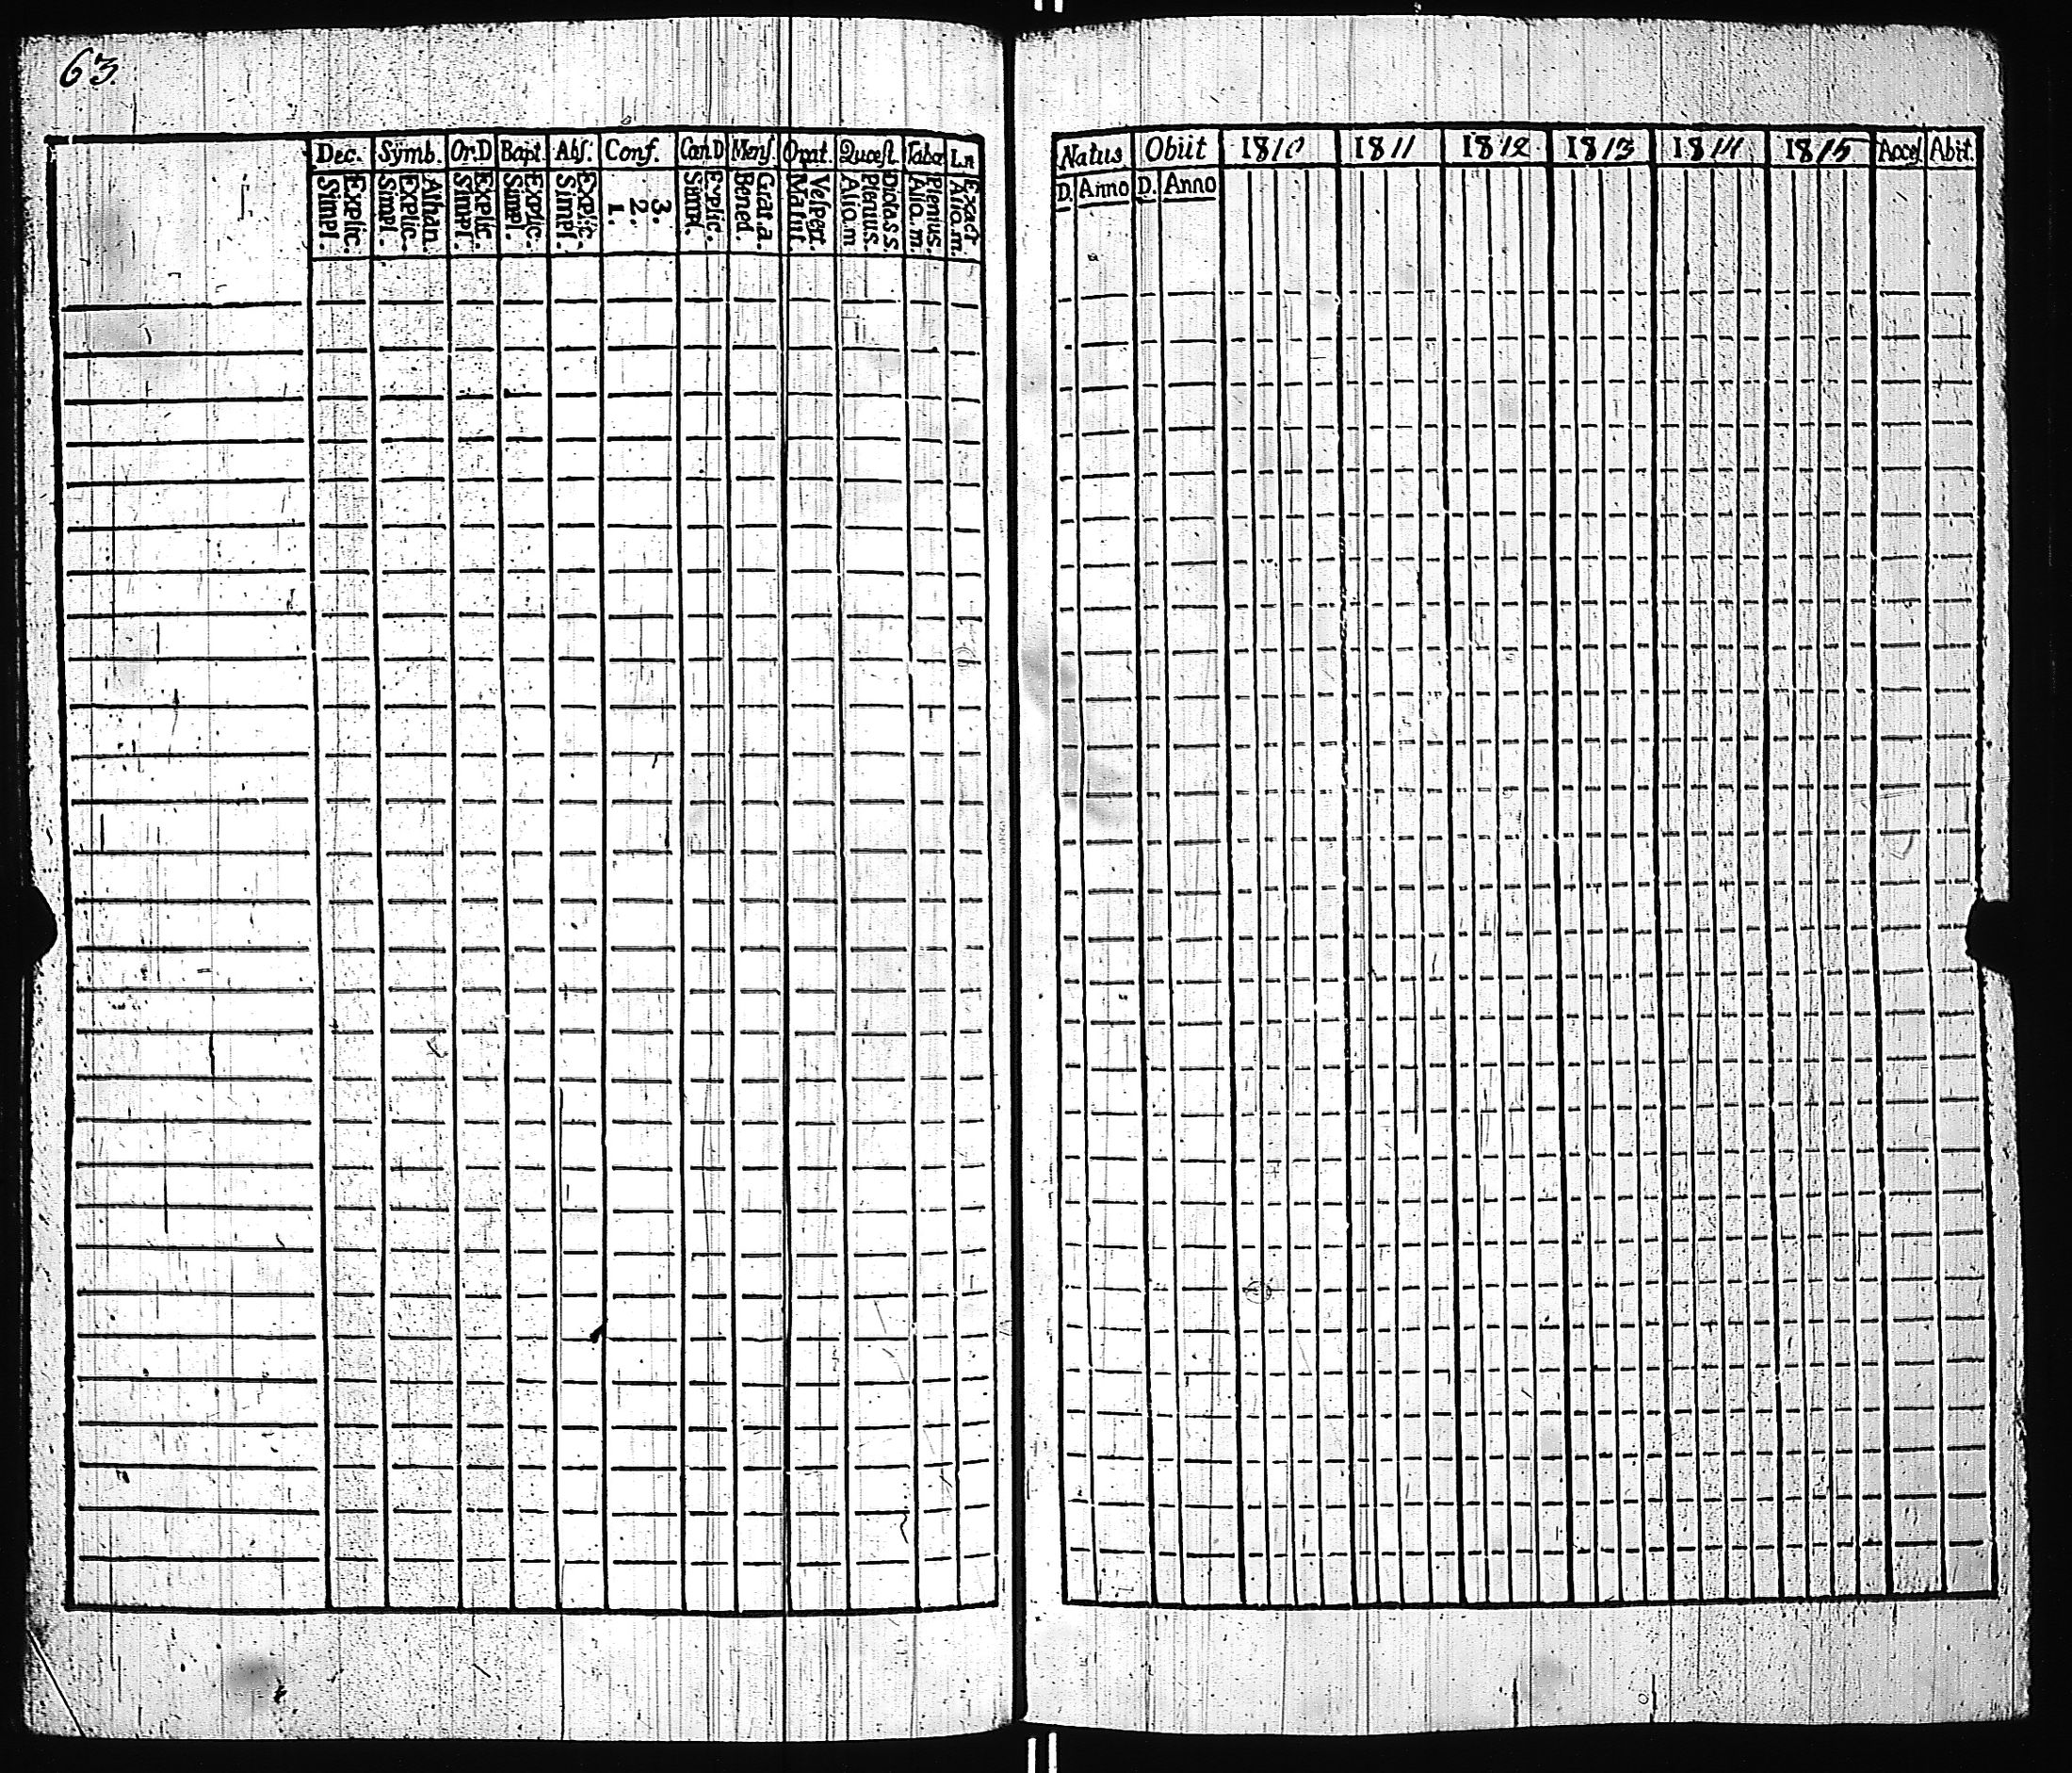 63.
Dec. Symb. Or.D Bapt. Abs. Conf. Can.D Mens. Orat. Quæst. Taba Ln
Explic. Simpl.
Athan. Explic. Simpl.
Explic. Simpl.
Explic. Simpl.
Explic. Simpl.
3. 2. 1.
Explic. Simpl.
Grat.a. Bened.
Vespert. Matut.
Dicta.s.s. Plenius. Alio.m.
Plenius. Alia.m.
Exact Alia.m.
Natus Obiit 1810 1811 1812 1813 1814 1815 Acces. Abit.
D. Anno D. Anno